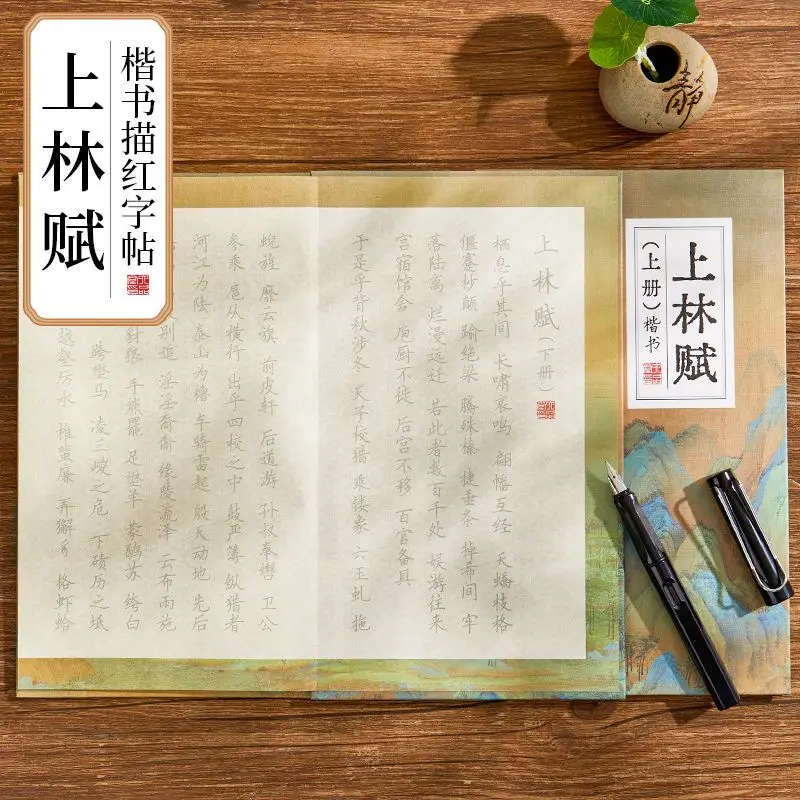 上林赋
楷书描红字帖
静
上林赋
(上册)楷书
上林赋(下册)
栖息乎其间 长啸哀鸣 翩幡互经 夭蟜枝格
偃蹇杪颠 踰绝梁 腾殊榛 捷垂条 掉希间 牢
落陆离 烂漫远迁 若此者数百千处 娱游往来
宫宿馆舍 庖厨不徙 后宫不移 百官备具
于是乎背秋涉冬 天子校猎 乘镂象 六玉虬 拖
蜺旌 靡云旗 前皮轩 后道游 孙叔奉辔 卫公
参乘 扈从横行 出乎四校之中 鼓严簿 纵猎者
河江为阹 泰山为橹 车骑雷起 殷天动地 先后
别追 淫淫裔裔 缘陵流泽 云布雨施
豺狼 手熊罴 足壄羊 蒙鹖苏 绔白
跨壄马 凌三嵕之危 下碛历之坻
越壑厉水 椎蜚廉 弄獬豸 格虾蛤